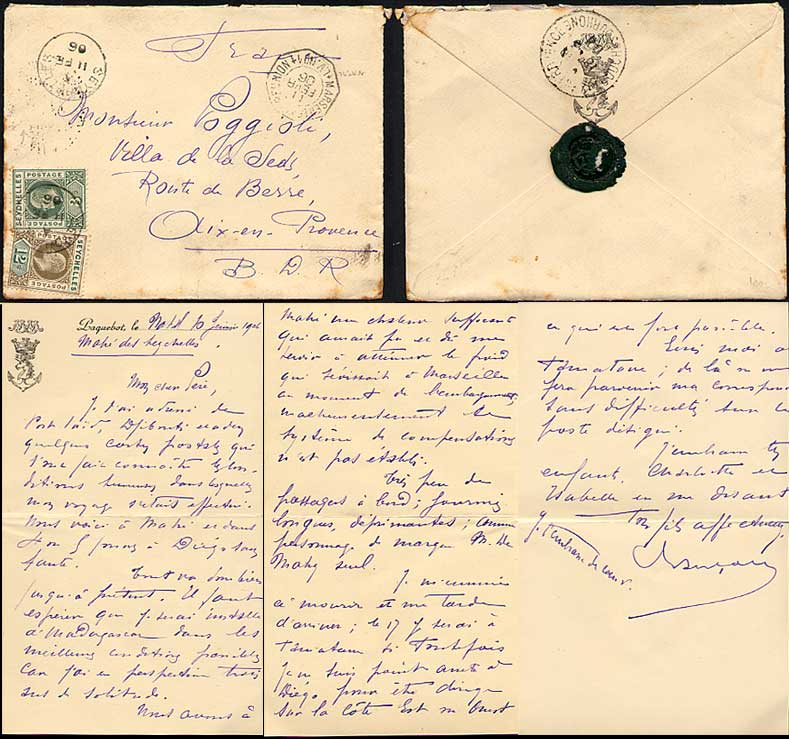 France
SEYCHELLES
11 FE
06
LA REUNION A MARSEILLE
11
FEVR
06
Monsieur Poggioli,
Villa de la Seds
Route de Berre,
Aix-en-Provence
B. D. R
SEYCHELLES
POSTAGE
POSTAGE
SEYCHELLES
BOUCHES DU RHONE
Paquebot, le 10 1906
Mahé des Seychelles
Mon cher Père,
Je t'ai adressé de
Port Saïd, Djibouti et Aden
quelques cartes postales qui
t'ont fait connaître les con-
ditions dans lesquelles
mon voyage s'était effectué.
Nous voici à Mahé et dans
à Diégo sans
faute.
Tout va bien
jusqu'à présent. Il faut
espérer que je serai installé
à Madagascar dans les
meilleures conditions possibles
car j'ai en perspective trois
ans de solitude.
Nous avons à
Mahé une chaleur suffocante
qui aurait pu et dû me
servir à atténuer le froid
qui sévissait à Marseille
au moment de l'embarquement
malheureusement le
système de compensations
n'est pas établi.
Très peu de
passagers à bord; journées
longues, déprimantes; comme
personnage de marque M. De
Mahy seul.
Je m'ennuie
à mourir et me tarde
d'arriver; le 17 je serai à
Tamatave si toutefois
je ne suis point arrêté à
Diégo pour être dirigé
sur la côte Est ou Ouest
ce qui est fort possible.
Ecris moi à
Tamatave; de là on me
fera parvenir ma correspon
sans difficultés sur le
poste désigné.
J'embrasse tes
enfants, Charlotte et
Isabelle en me disant
Ton fils affectueux,
Je t'embrasse de coeur.